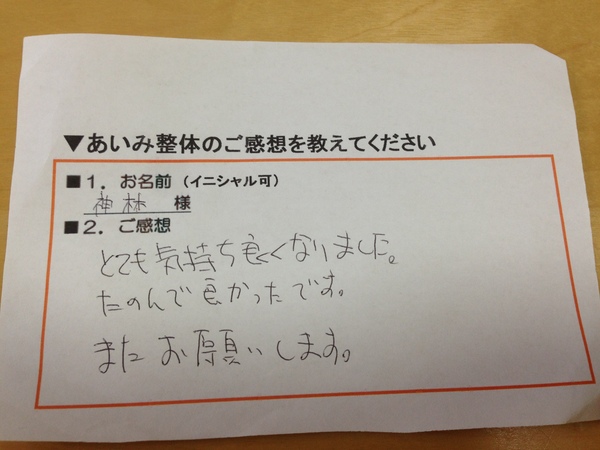 ▼あいみ整体のご感想を教えてください
■１．お名前（イニシャル可）
神林 様
■２．ご感想
とても気持ち良くなりました。
たのんで良かったです。
またお願いします。